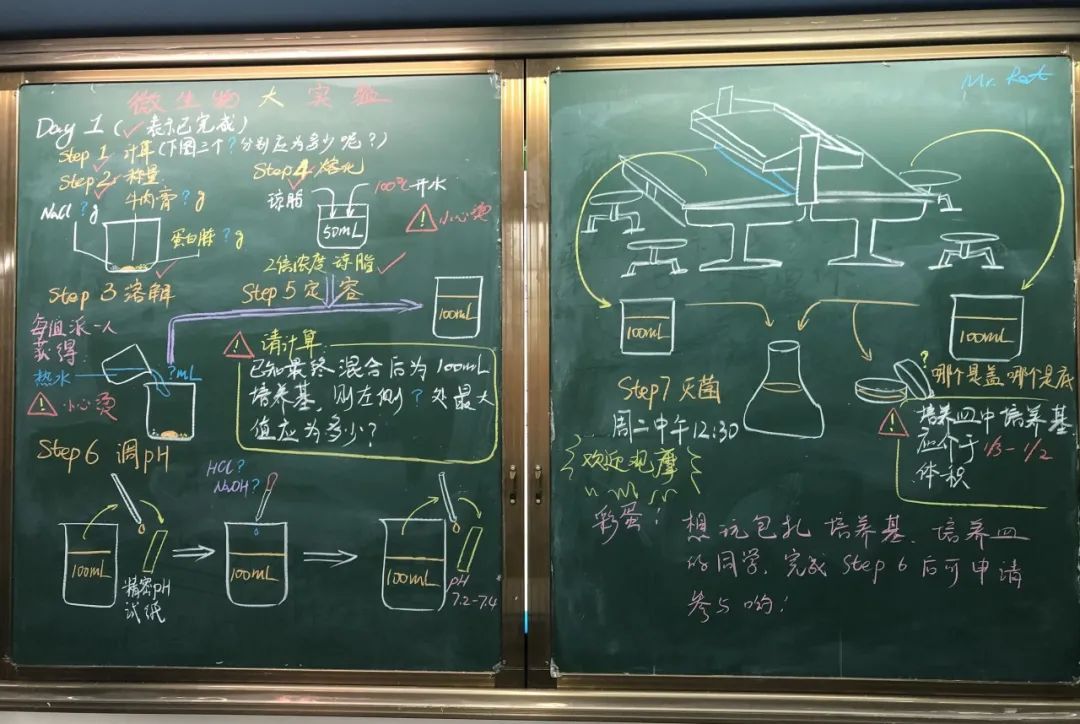 微生物大实验
Day 1 (✓表示已完成)
Step 1 计算(下图三个?分别应为多少呢?)
Step 2 称量
NaCl ?g
牛肉膏 ?g
蛋白胨 ?g
Step 4 熔化
琼脂
100℃开水
50mL
小心烫
2倍浓度琼脂
Step 3 溶解
Step 5 定容
100mL
每组派一人
获得:
热水
?mL
小心烫
请计算:
已知最终混合后为100mL
培养基,则左侧?处最大
值应为多少?
Step 6 调pH
HCl?
NaOH?
100mL
精密pH
试纸
100mL
100mL
pH
7.2-7.4
100mL
100mL
Step7 灭菌
周二中午12:30
欢迎观摩
?
哪个是盖,哪个是底
培养皿中培养基
应介于1/3-1/2
体积
彩蛋!
想玩包扎培养基、培养皿
的同学,完成Step 6后可申请
参与哟!